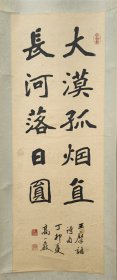 大漠孤烟直
長河落日圓
王摩詰
詩句
丁卯夏